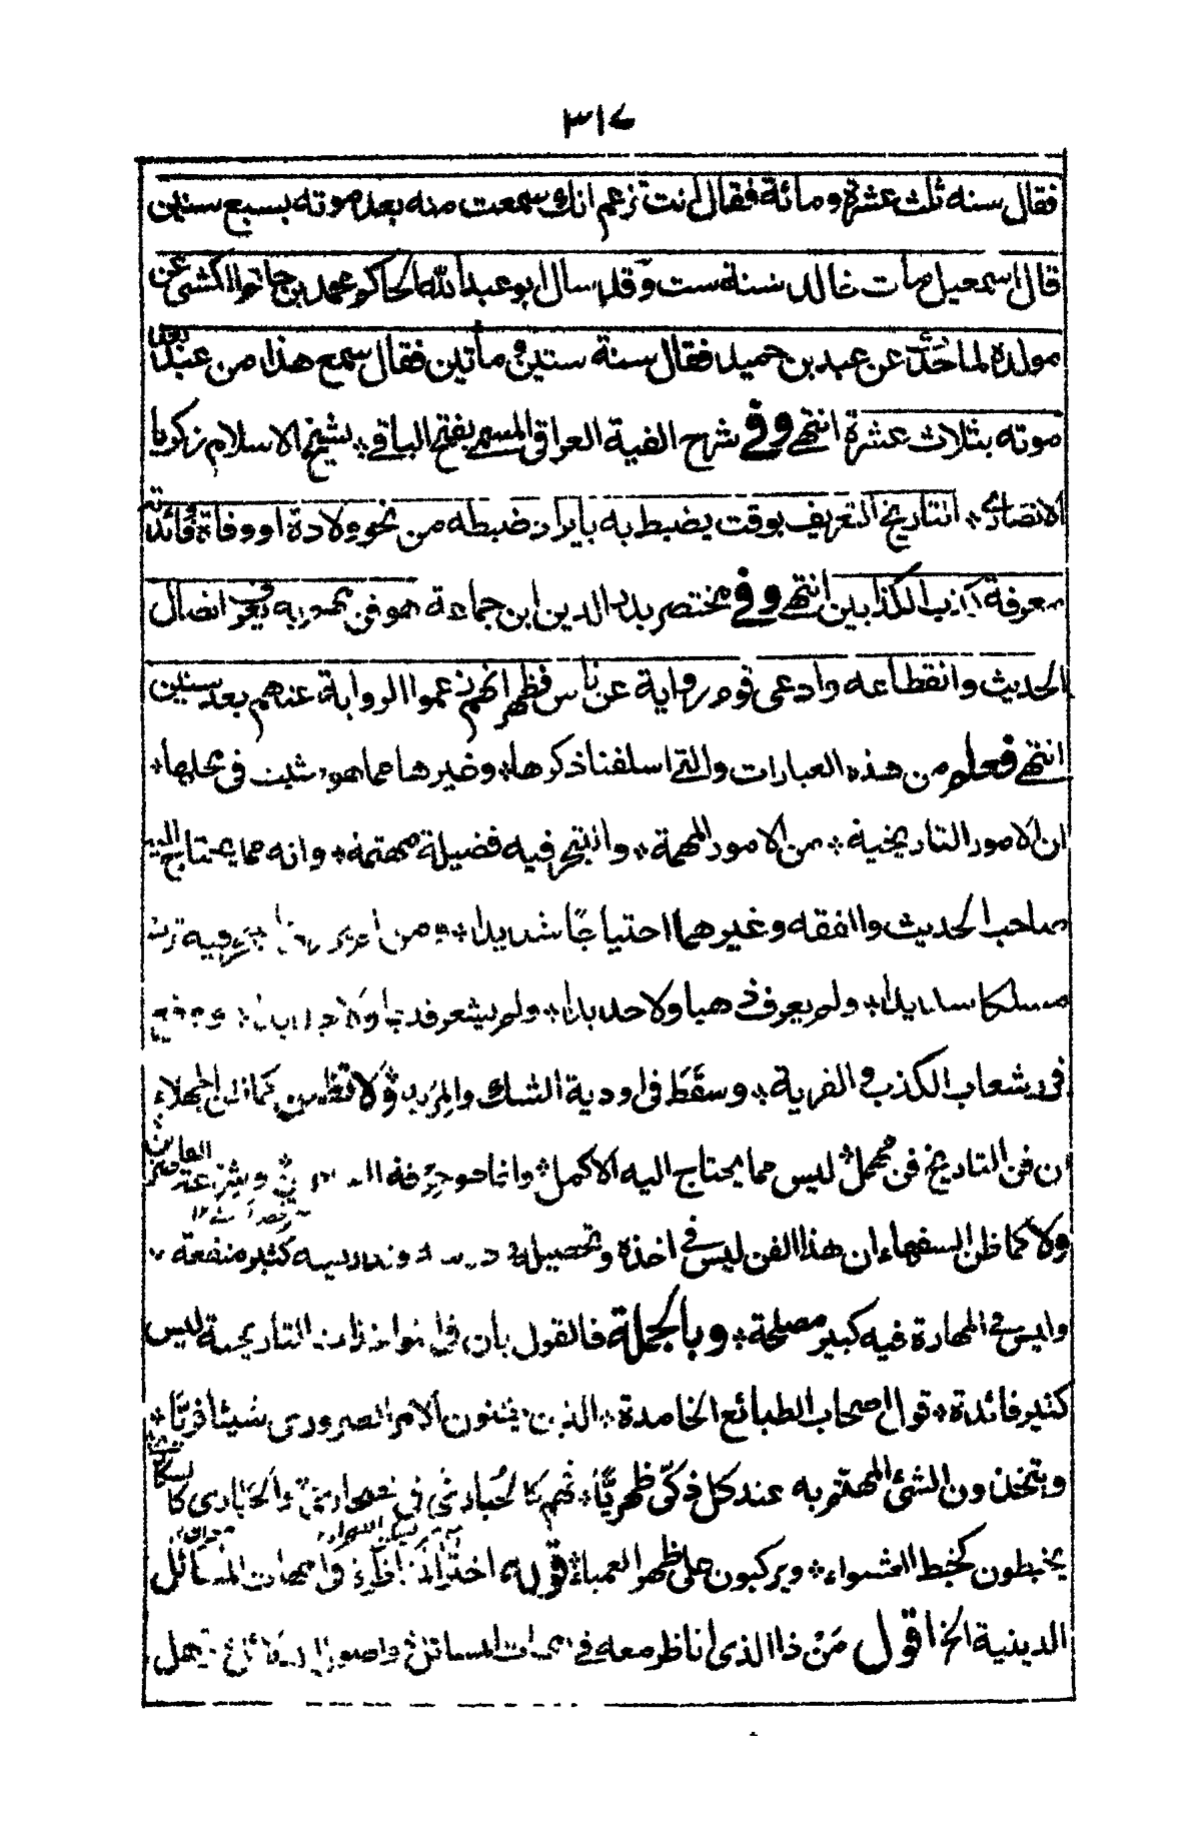 ٣١٧
فقال سنه ثلث عشرة ومائة فقال انت تزعم انك سمعت منه بعد موته بسبع سنين
قال اسمعيل مات خالد سنة ست وقد سال ابو عبد الله الحاكم محمد بن حاتم الكشى عن
مولده لما حدث عن عبد بن حميد فقال سنة ستين ومأتين فقال سمع هذا من عبد بعد
موته بثلاث عشرة انتهى وفي شرح الفية العراقى المسمى بفتح الباقى * لشيخ الاسلام زكريا
الانصارى * التاريخ التعريف بوقت يضبط به ما يراد ضبطه من نحو ولادة او وفاة وفائدته
معرفة كذب الكذابين انتهى وفي مختصر بدر الدين ابن جماعة هو فن مهم به يعرف اتصال
الحديث وانقطاعه وادعى قوم رواية عن ناس فظهر انهم زعموا الرواية عنهم بعد سنين
انتهى فعلم من هذه العبارات والتى اسلفنا ذكرها * وغيرها مما هو مثبت فى محلها *
ان الامور التاريخية * من الامور المهمة * والتبحر فيه فضيلة مهتمة * وانه مما يحتاج اليه
صاحب الحديث والفقه وغيرهما احتياجًا شديدا * ومن فيه
مسلكا سديدا * ولم يعرف ذهبا ولا حديدا * ولم يشعر قديما ولا جديدا * ووقع
فى شعاب الكذب والفرية * وسقَطَ فى اودية الشك والمرية * ولا تظنن كما ظن الجهلاء
ان فن التاريخ فن مهمل * ليس مما يحتاج اليه الاكمل * وانما هو حرفة
ولا كما ظن السفهاء ان هذا الفن ليس فى اخذه وتحصيله وتدريسه كثير منفعة *
وليس فى المهارة فيه كبير مصلحة * وبالجملة فالقول بان فى التاريخية ليس
كثير فائدة * قول اصحاب الطبائع الخامدة * الذين يظنون الامر الضرورى شيئا فريّا *
ويتخذون الشئ المهتم به عند كل ذكىّ ظهريّا * فهم كالحبارى فى والحبارى كالسكارى
يخبطون كخبط العشواء * ويركبون على ظهر العمياء * قوله فى امهات المسائل
الدينية الخ اقول مَنْ ذا الذى اناظر معه فى امهات المسائل * واصول الدلائل * هل